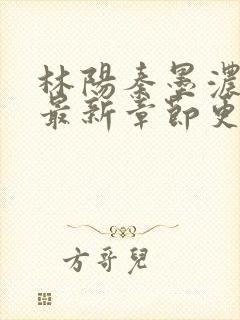 林陽秦墨濃
最新章節更
方哥兒